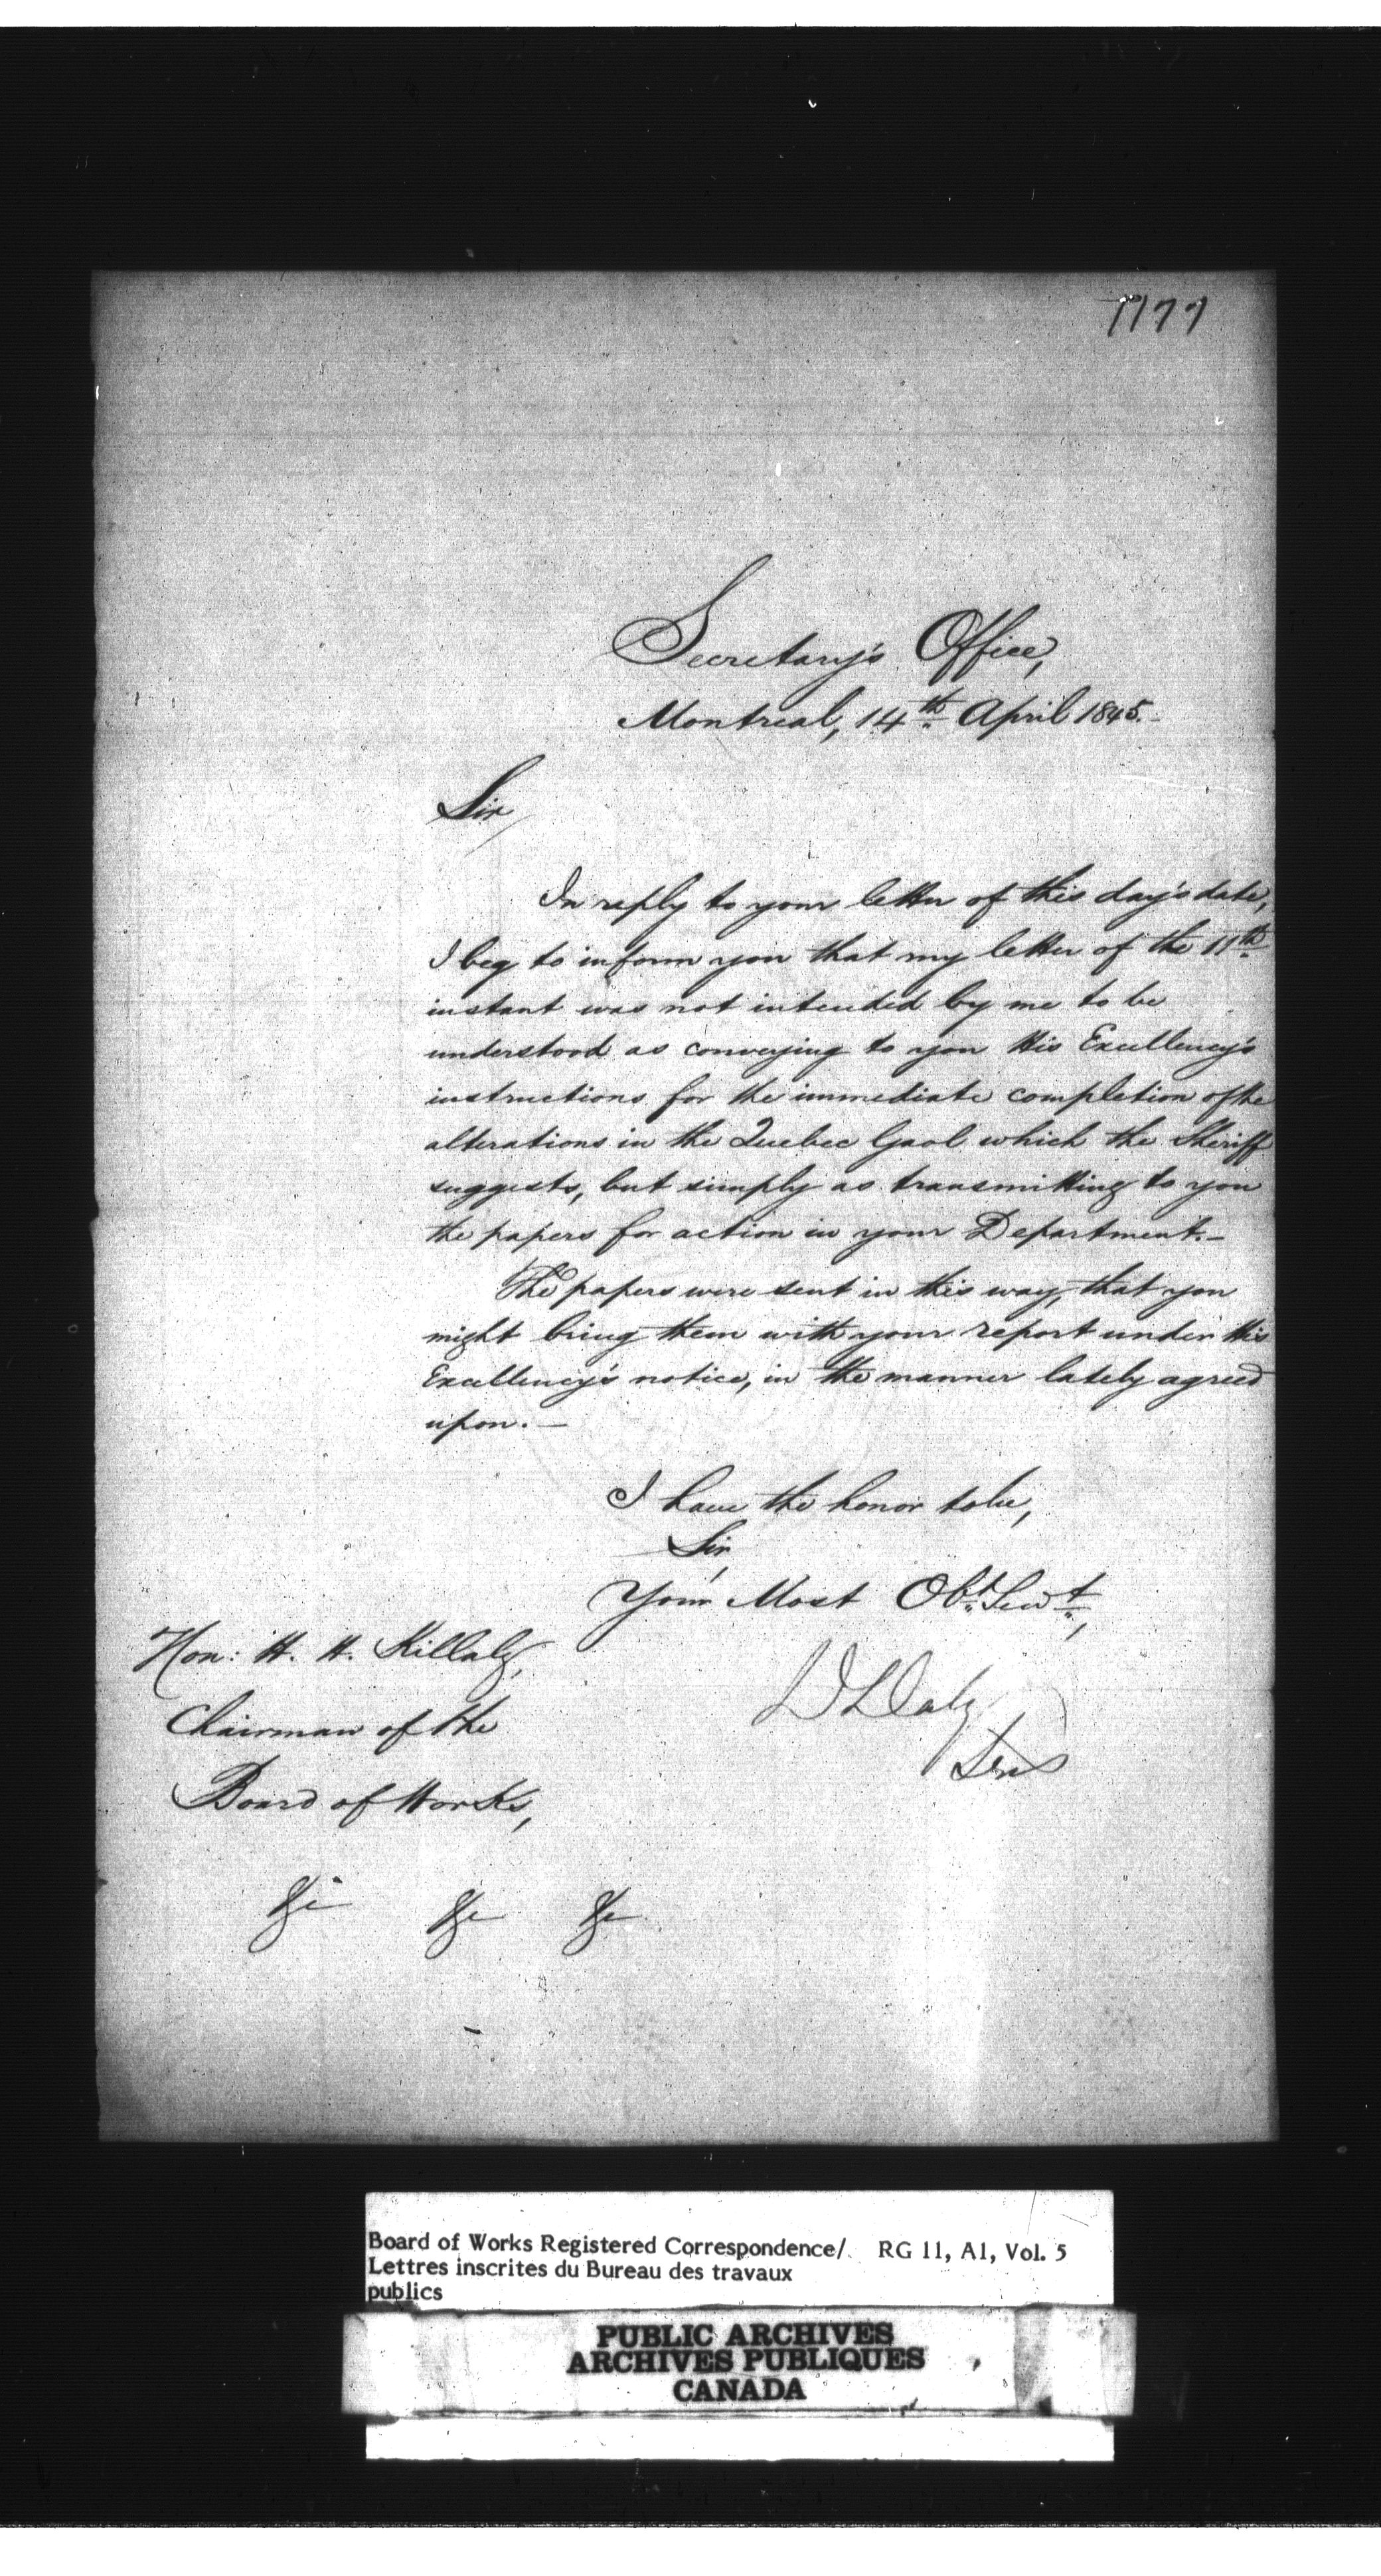 1177
Secretary's Office,
Montreal, 14th April 1845.-
Sir,
In reply to your letter of this day's date,
I beg to inform you that my letter of the 11th
instant was not intended by me to be
understood as conveying to you His Excellency's
instructions for the immediate completion of the
alterations in the Quebec Gaol which the Sheriff
suggests, but simply as transmitting to you
the papers for action in your Department.-
The papers were sent in this way, that you
might bring them with your report under His
Excellency's notice, in the manner lately agreed
upon.-
I have the honor to be,
Sir,
Your Most Obt. Servt.,
D Daly
Secy
Hon: H. H. Killaly,
Chairman of the
Board of Works,
&c &c &c
Board of Works Registered Correspondence/ RG 11, A1, Vol. 5
Lettres inscrites du Bureau des travaux
publics
PUBLIC ARCHIVES
ARCHIVES PUBLIQUES
CANADA